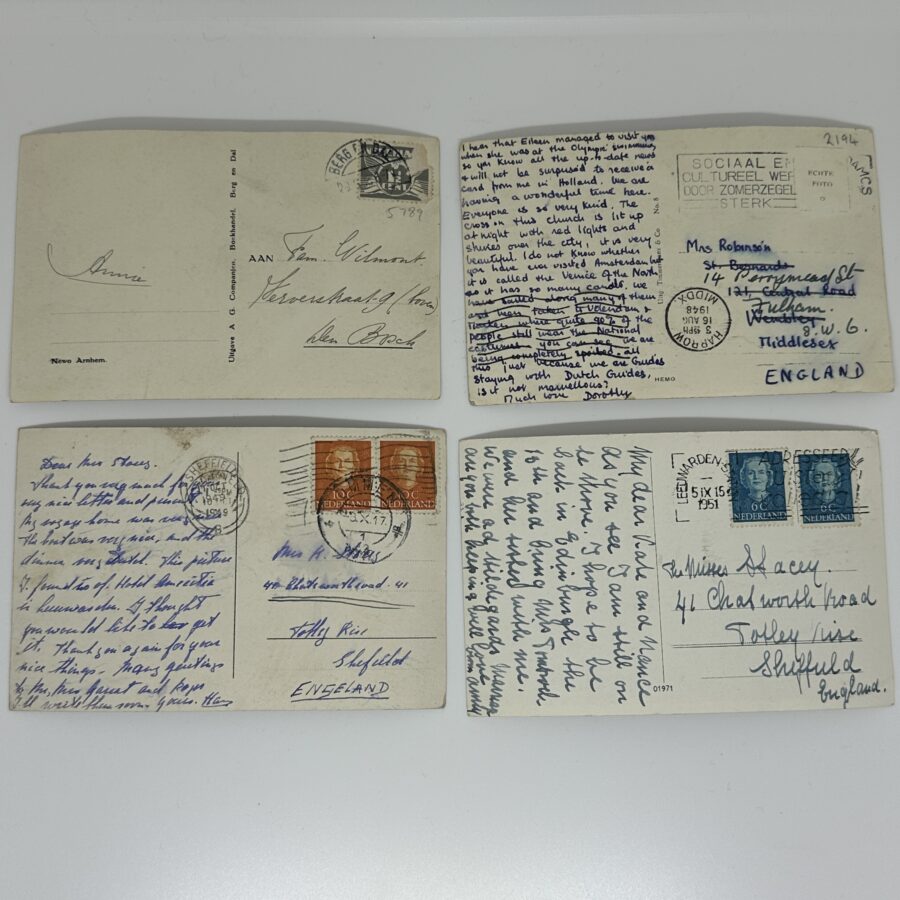 BERG EN DAL
5789
Annie
AAN Fam. Wilmont.
den Bosch
Nevo Arnhem.
Uitgave A. G. Companjen, Boekhandel, Berg en Dal
I hear that Eileen managed to visit you
when she was at the Olympic swimming
so you know all the up-to-date news
& will not be surprised to receive a
card from me in Holland. We are
having a wonderful time here.
Everyone is so very kind. The
cross on this church is lit up
at night with red lights and
shines over the city, it is very
beautiful. I do not know whether
you have ever visited Amsterdam but
it is called the Venice of the North
as it has so many canals. We
have sailed along many of them
and been taken to Volendam &
Marken where quite 80% of the
people still wear the National
costumes you can see we are
being completely spoiled. all
this just because we are Guides
staying with Dutch Guides,
is it not marvellous?
Much love Dorothy
2194
SOCIAAL EN
CULTUREEL WERK
DOOR ZOMERZEGEL
STERK
ECHTE
FOTO
DAMCS
Mrs Robinson
St Bernards
14 Perrymead St
121, Central Road
Fulham.
Wembley
S.W.6.
Middlesex
ENGLAND
HARROW
3 15PM
16 AUG
1948
MIDDX.
HEMO
Dear Mrs Stacey.
Thank you very much for your
very nice letter and
My voyage home was very
the boat was very nice, and the
dinner
This picture
I found is of Hotel Amicitia
in Leeuwarden. I thought
you would like to get
it. Thank you again for your
nice things. Many greetings
to Mr, Mrs and
I'll write them soon. Yours. Hans
SHEFFIELD
10 C
NEDERLAND
10 C
NEDERLAND
Mrs H.
41
Totley Rise
Shefield
ENGELAND
My dear Kate and Nance
As you see I am still on
the move. I hope to be
back in Edinburgh the
15th and bring Mrs
and her sister with me.
We
are both
LEEUWARDEN-S
5 IX 15
1951
6 C
NEDERLAND
6 C
NEDERLAND
The Misses Stacey.
41 Chatsworth Road
Totley Rise
Sheffield
England.
01971